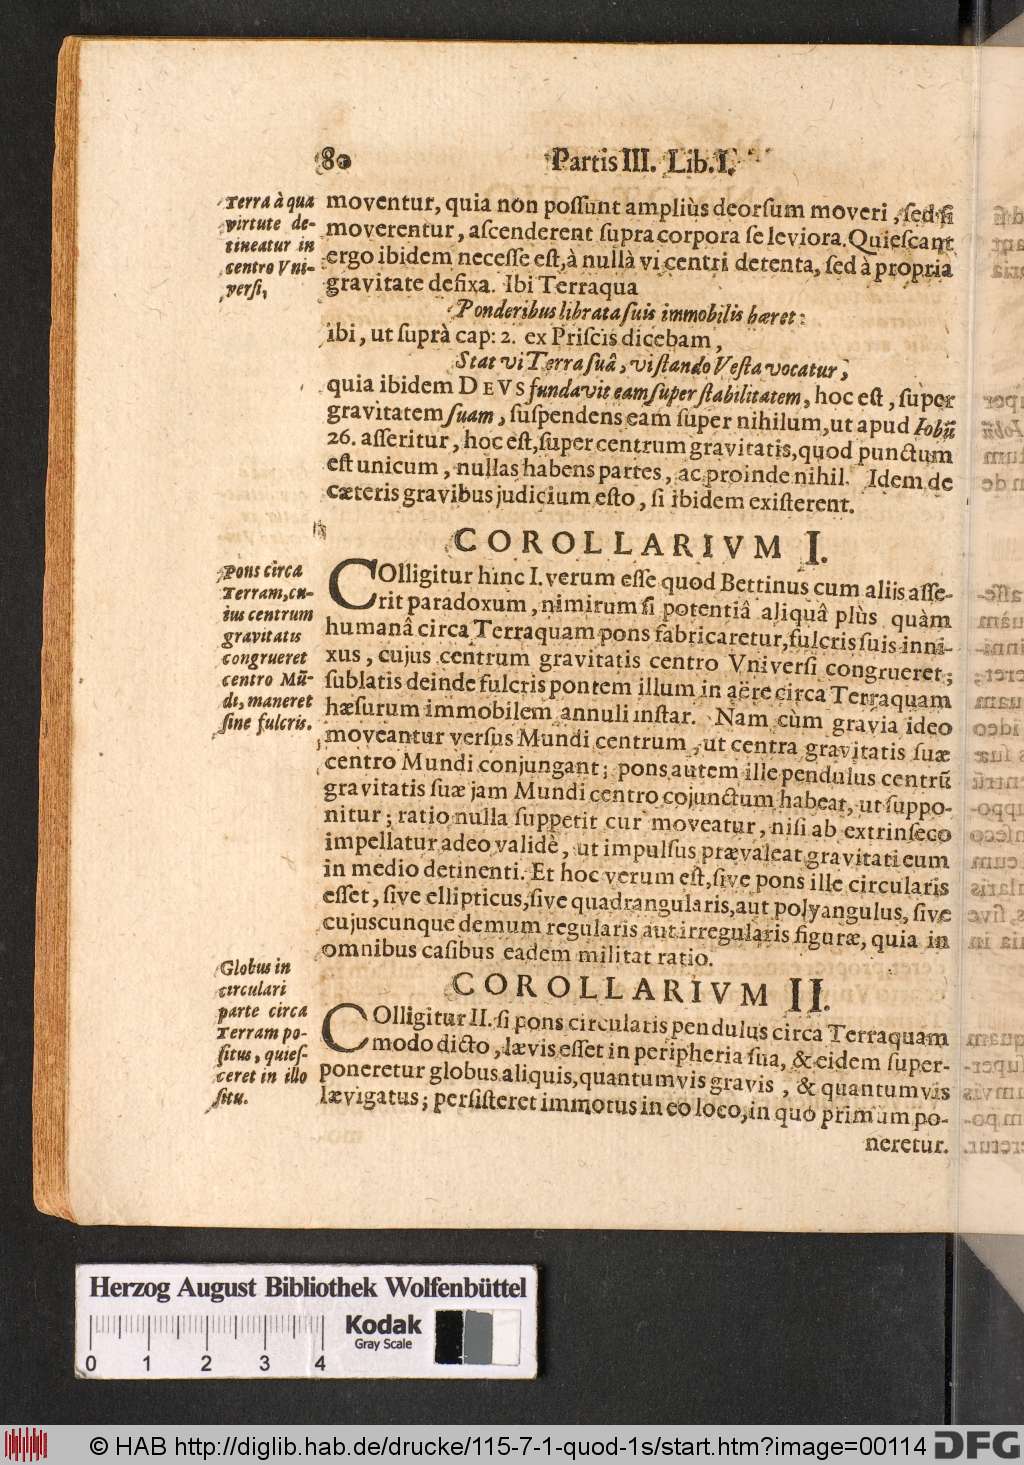 80 Partis III. Lib. I.
Terra à qua
virtute de-
tineatur in
centro Vni-
versi.
moventur, quia non possunt ampliùs deorsum moveri, sed si
moverentur, ascenderent supra corpora se leviora. Quiescant
ergo ibidem necesse est, à nullà vi centri detenta, sed à propria
gravitate defixa. Ibi Terraqua
Ponderibus librata suis immobilis hæret:
ibi, ut suprà cap: 2. ex Priscis dicebam,
Stat vi Terra suâ, vi stando Vesta vocatur,
quia ibidem DEVS fundavit eam super stabilitatem, hoc est, super
gravitatem suam, suspendens eam super nihilum, ut apud Iobū
26. asseritur, hoc est, super centrum gravitatis, quod punctum
est unicum, nullas habens partes, ac proinde nihil. Idem de
cæteris gravibus judicium esto, si ibidem existerent.
COROLLARIVM I.
Pons circa
Terram, cu-
ius centrum
gravitatis
congrueret
centro Mū-
di, maneret
sine fulcris.
COlligitur hinc I. verum esse quod Bettinus cum aliis asse-
rit paradoxum, nimirum si potentiâ aliquâ plùs quàm
humanâ circa Terraquam pons fabricaretur, fulcris suis inni-
xus, cujus centrum gravitatis centro Vniversi congrueret;
sublatis deinde fulcris pontem illum in aëre circa Terraquam
hæsurum immobilem annuli instar. Nam cùm gravia ideo
moveantur versus Mundi centrum, ut centra gravitatis suæ
centro Mundi conjungant; pons autem ille pendulus centrū
gravitatis suæ jam Mundi centro cojunctum habeat, ut suppo-
nitur; ratio nulla suppetit cur moveatur, nisi ab extrinseco
impellatur adeo validè, ut impulsus prævaleat gravitati eum
in medio detinenti. Et hoc verum est, sive pons ille circularis
esset, sive ellipticus, sive quadrangularis, aut polyangulus, sive
cujuscunque demum regularis aut irregularis figuræ, quia in
omnibus casibus eadem militat ratio.
COROLLARIVM II.
Globus in
circulari
parte circa
Terram po-
situs, quies-
ceret in illo
situ.
COlligitur II. si pons circularis pendulus circa Terraquam
modo dicto, lævis esset in peripheria sua, & eidem super-
poneretur globus aliquis, quantumvis gravis, & quantumvis
lævigatus; persisteret immotus in eo loco, in quo primùm po-
neretur.
Herzog August Bibliothek Wolfenbüttel
Kodak
Gray Scale
0 1 2 3 4
© HAB http://diglib.hab.de/drucke/115-7-1-quod-1s/start.htm?image=00114
DFG